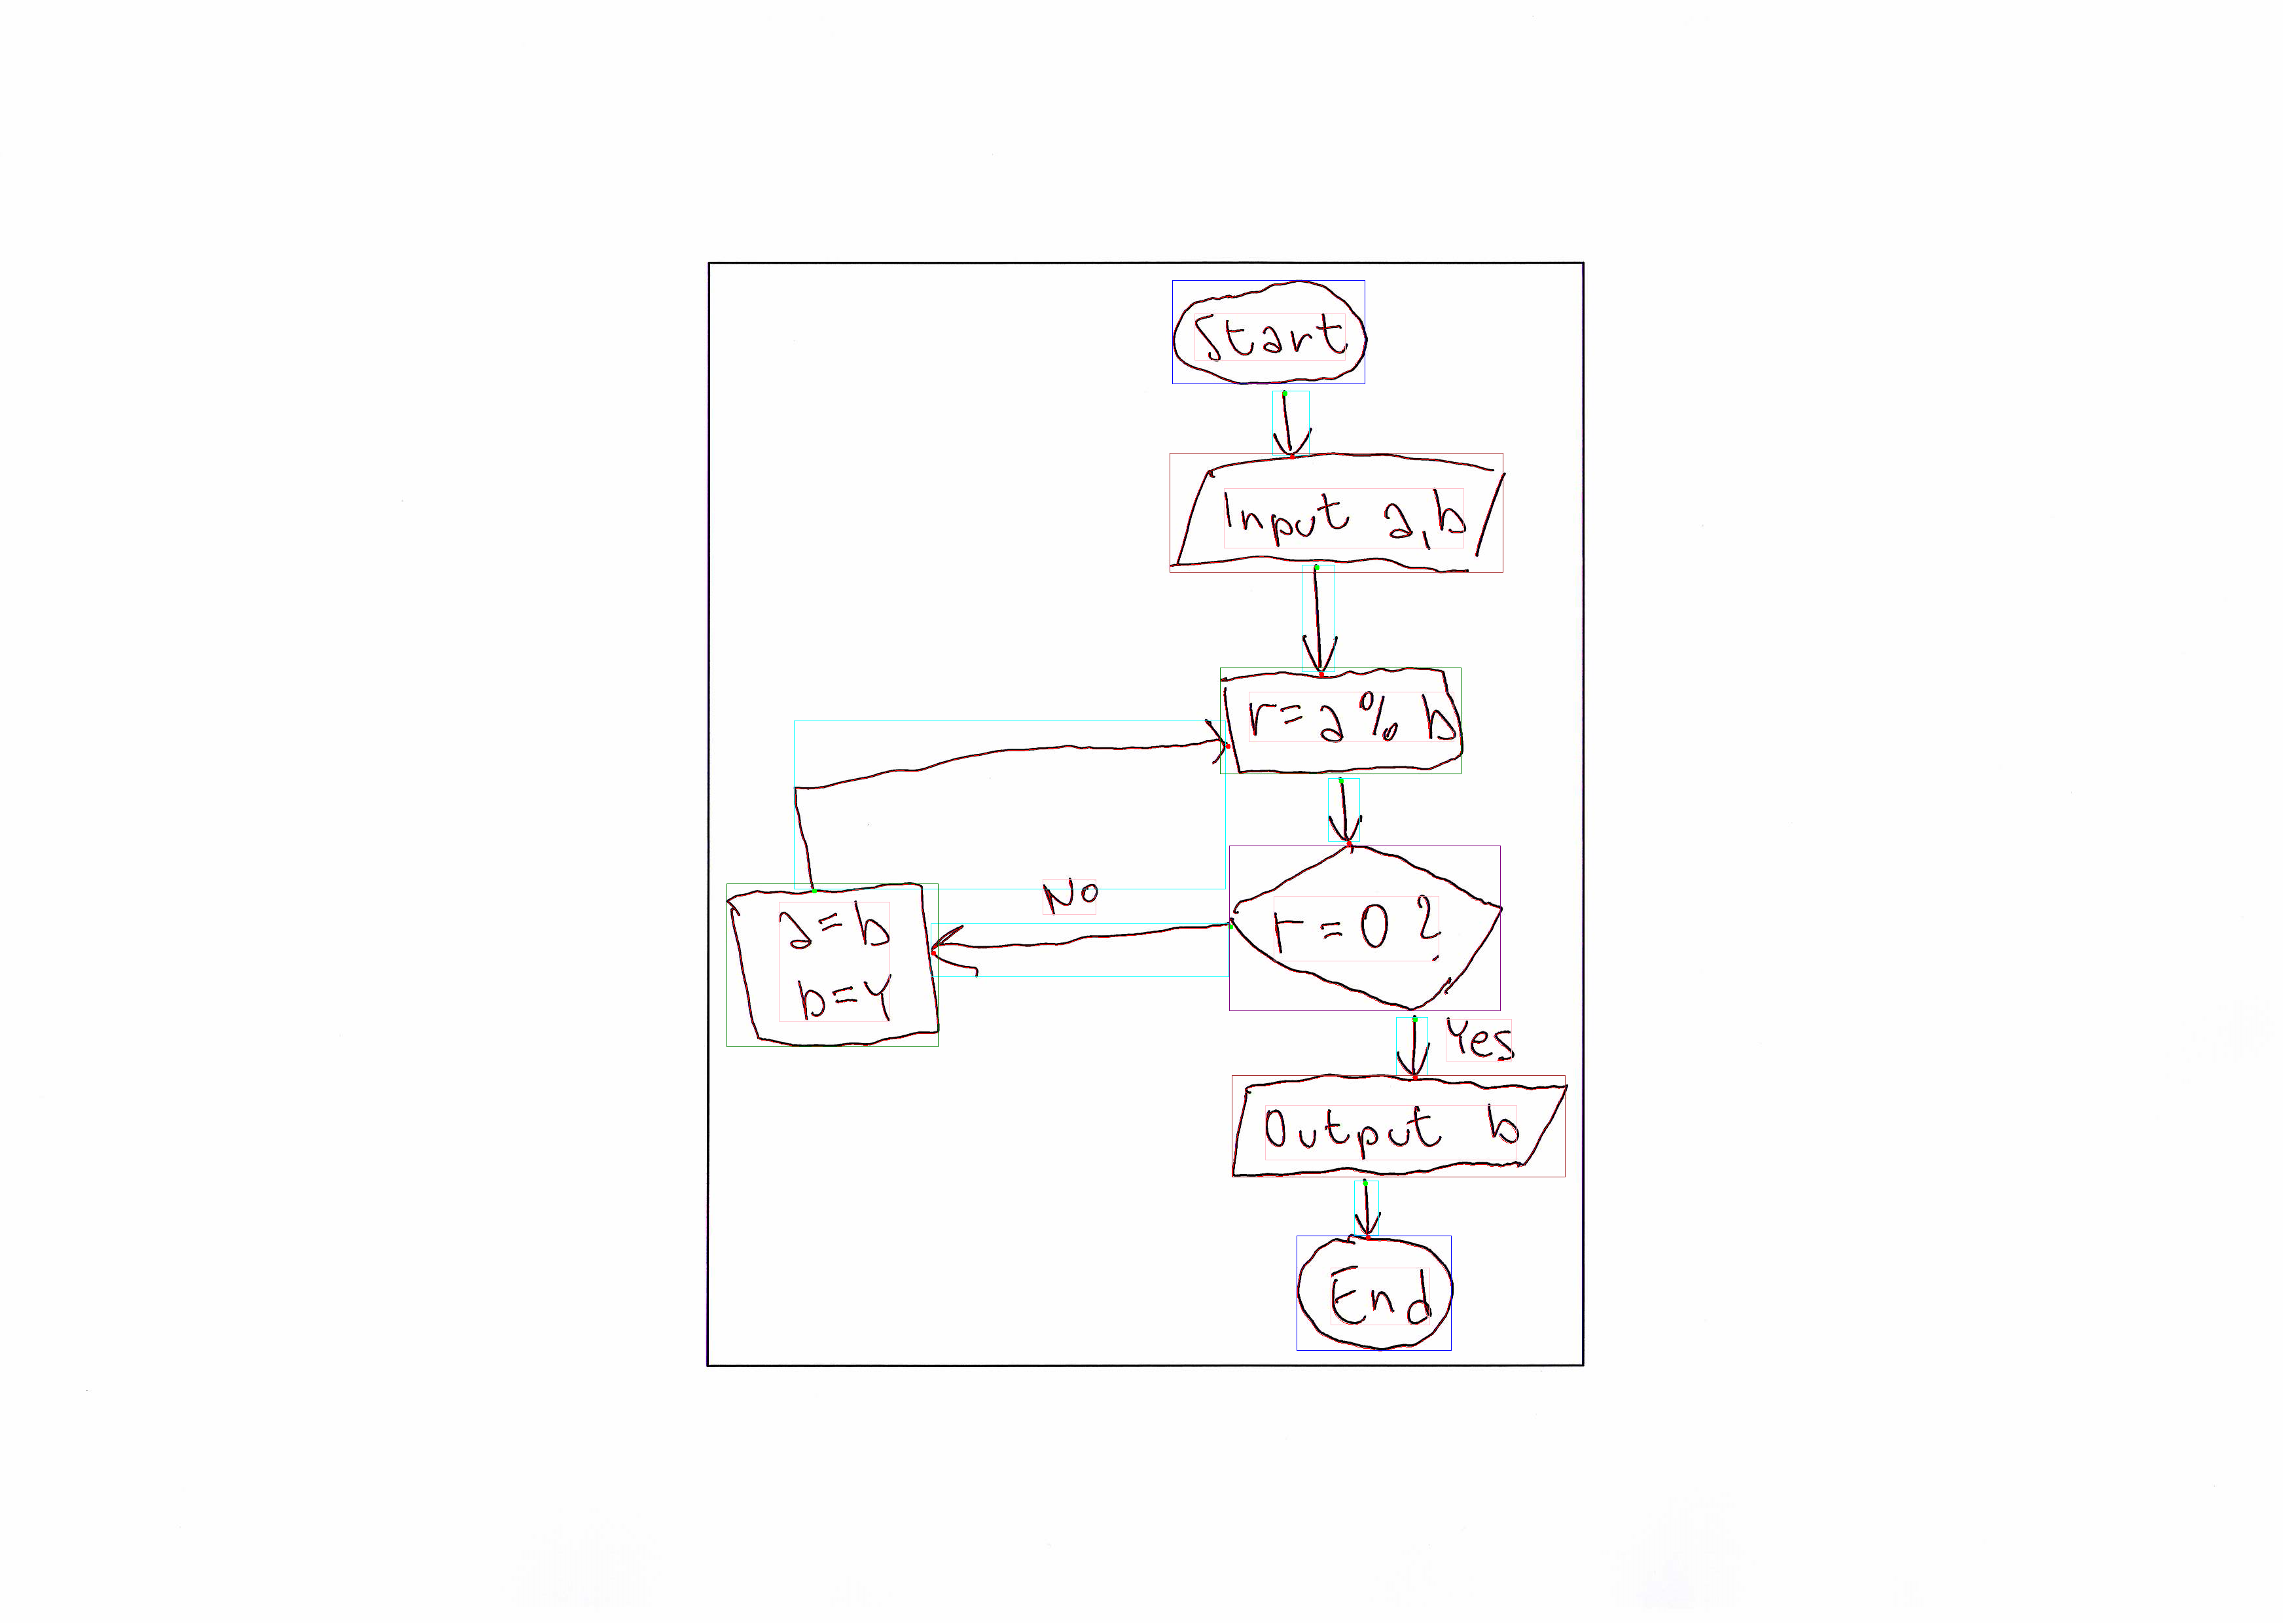 Start
Input a,b
r=a% b
No
r=0?
a=b
b=Y
Yes
Output b
End